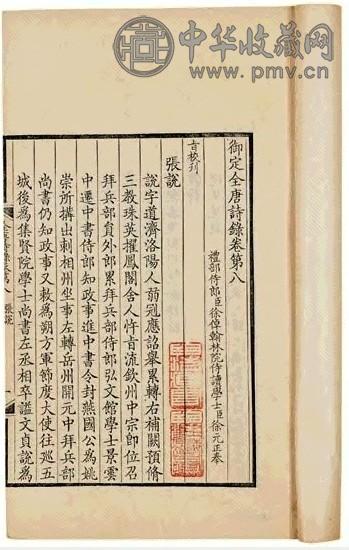 中华收藏网
www.pmv.cn
御定全唐詩錄卷第八
禮部侍郎臣徐倬翰林院侍讀學士臣徐元正奉
旨校刊
張說
說字道濟洛陽人弱冠應詔舉累轉右補闕預脩
三教珠英擢鳳閣舍人忤旨流欽州中宗即位召
拜兵部員外郎累拜兵部侍郎弘文館學士景雲
中遷中書侍郎知政事進中書令封燕國公為姚
崇所搆出刺相州坐事左轉岳州開元中拜兵部
尚書仍知政事又敕為朔方軍節度大使往廵五
城後為集賢院學士尚書左丞相卒諡文貞說為
張說